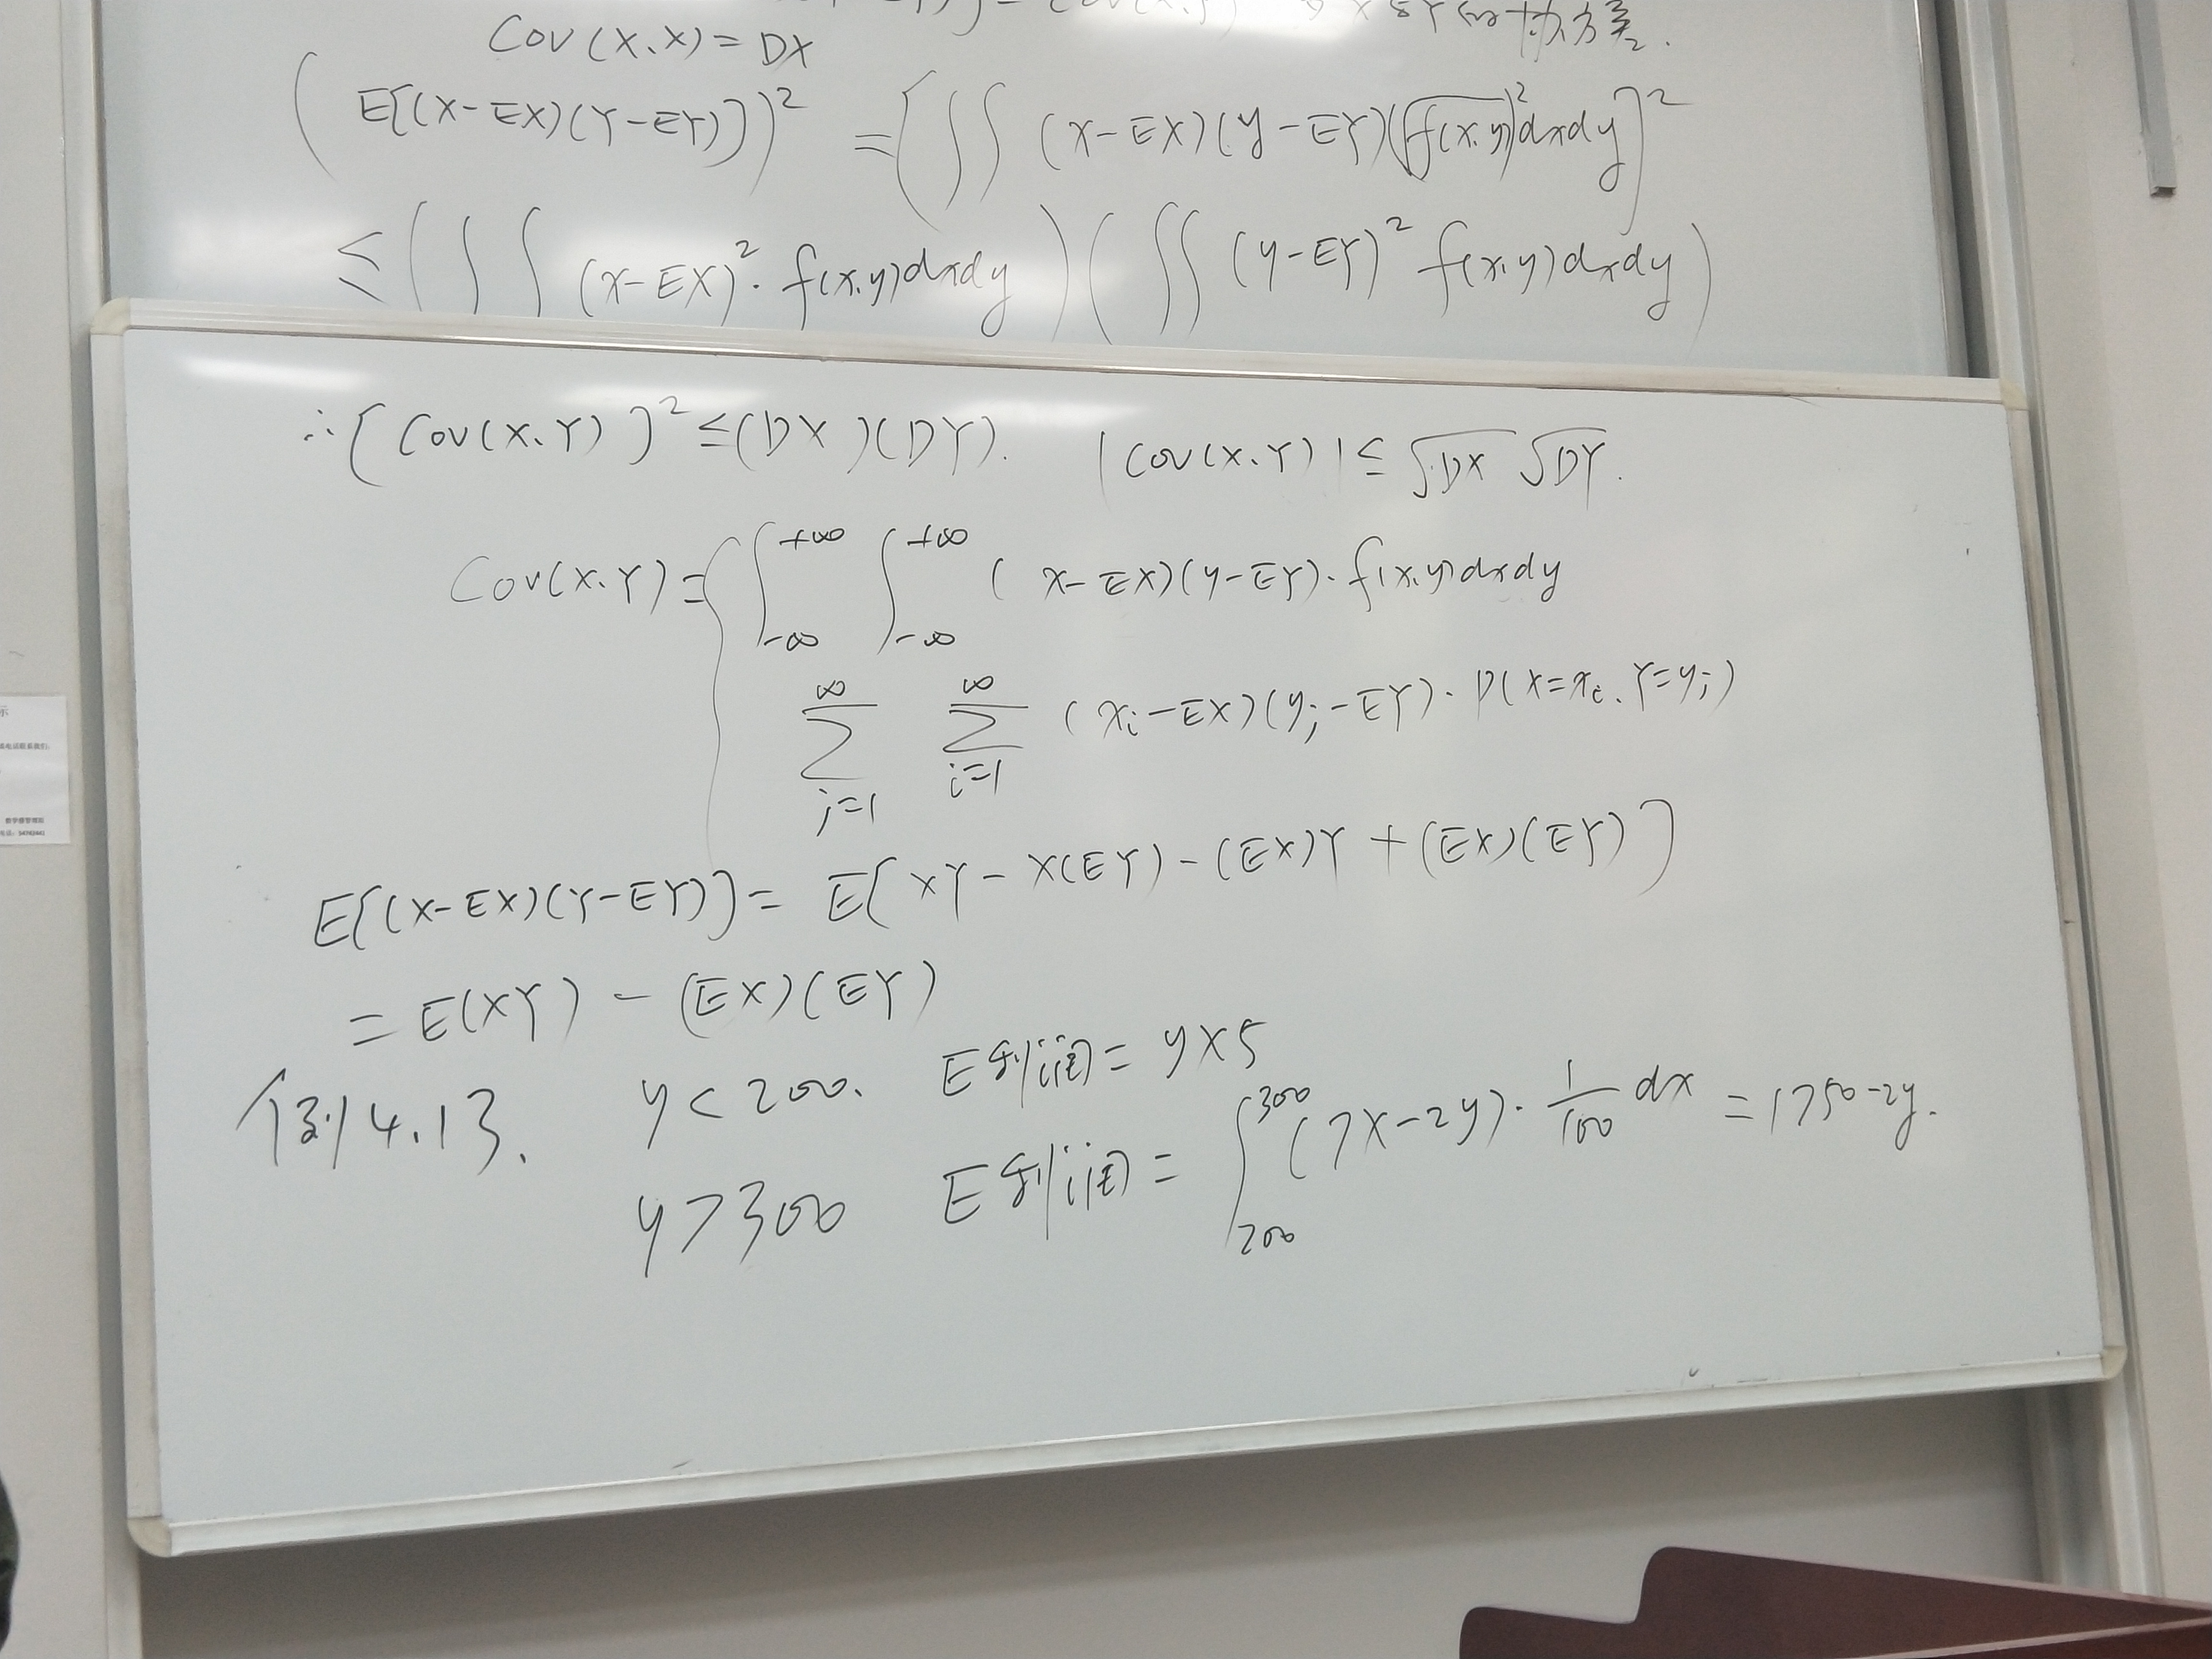 Cov(X,X)=DX
(E[(X-EX)(Y-EY)])² =[∫∫ (x-EX)(y-EY)(√f(x,y))²dxdy]²
≤(∫∫ (x-EX)²·f(x,y)dxdy)(∫∫ (y-EY)² f(x,y)dxdy)
∴[Cov(X,Y)]²≤(DX)(DY). |Cov(X,Y)|≤√DX √DY.
Cov(X,Y)={∫_{-∞}^{+∞} ∫_{-∞}^{+∞} (x-EX)(y-EY)·f(x,y)dxdy
∑_{j=1}^{∞} ∑_{i=1}^{∞} (xi-EX)(yj-EY)·P(X=xi,Y=yj)
E[(X-EX)(Y-EY)]= E[XY-X(EY)-(EX)Y+(EX)(EY)]
=E(XY)-(EX)(EY)
例4.13. y<200. E利润=y×5
y>300 E利润=∫_{200}^{300}(7x-2y)·1/100 dx=1750-2y.
教学楼管理部